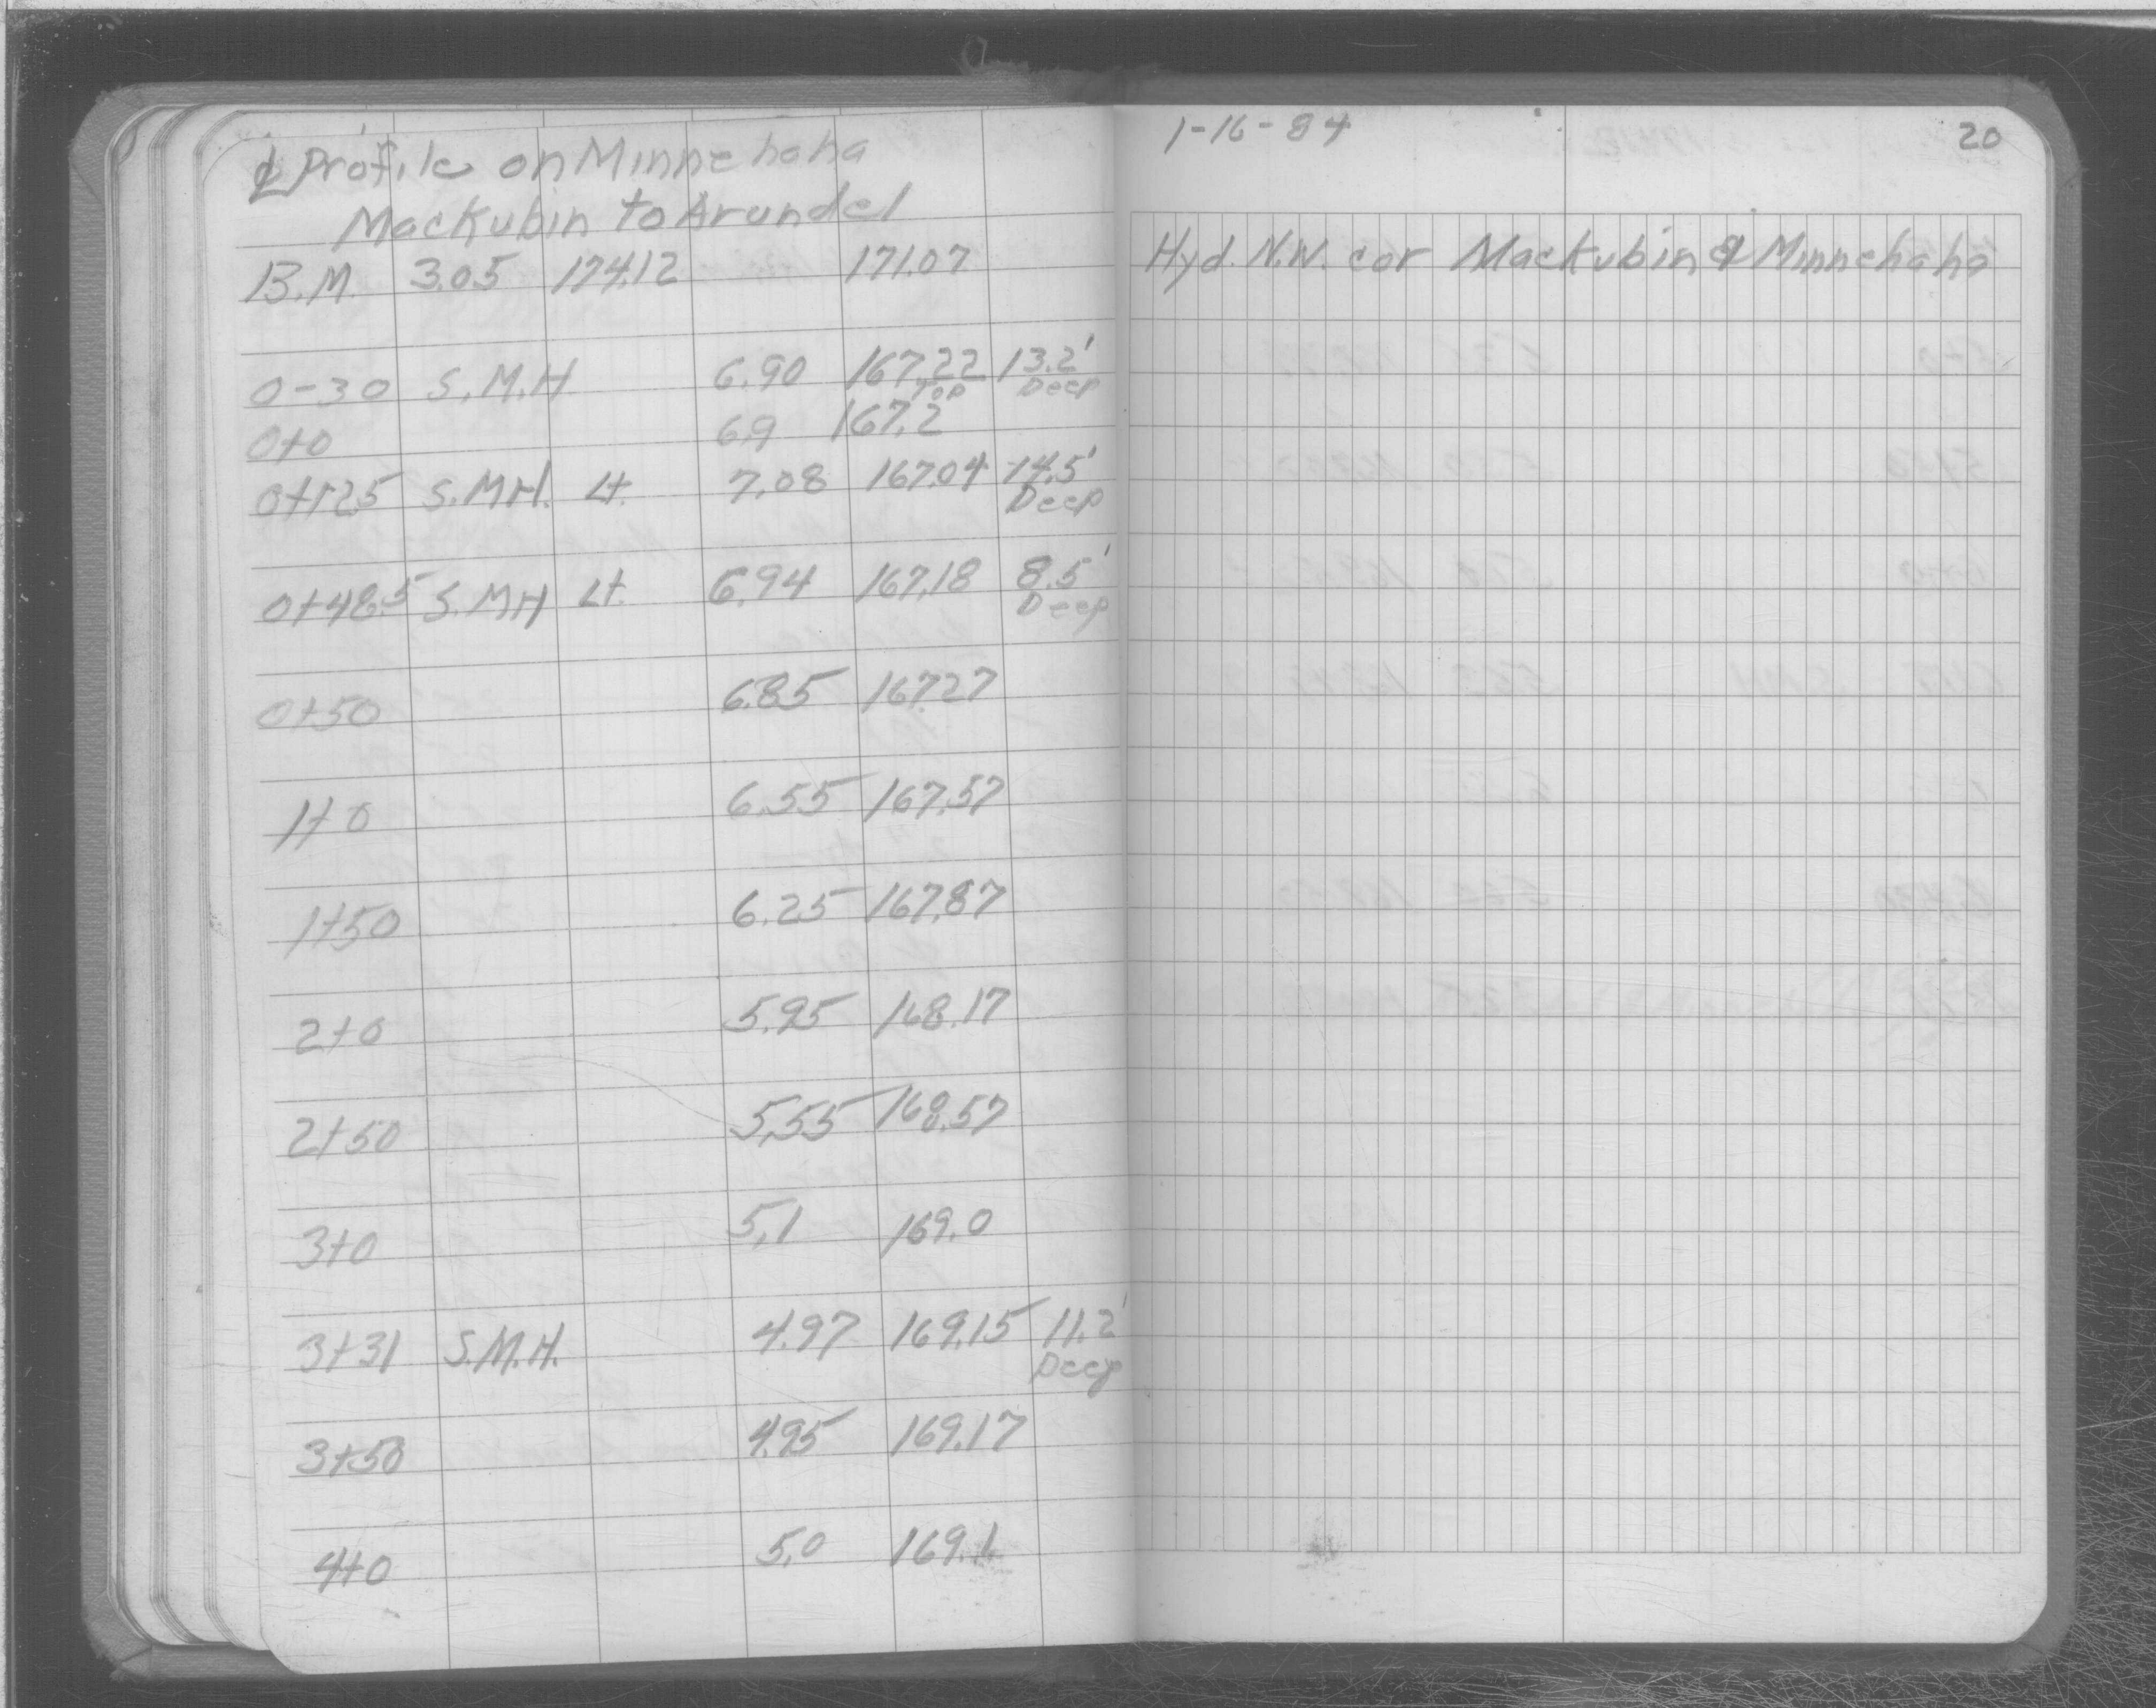 ℄ Profile on Minnehaha
Mackubin to Arundel
B.M. 3.05 174.12 171.07
0-30 S.M.H. 6.90 167.22 13.2'
Top Deep
0+0 6.9 167.2
0+125 S.MH. Lt. 7.08 167.04 14.5'
Deep
0+48.5 S.MH Lt. 6.94 167.18 8.5'
Deep
0+50 6.85 167.27
1+0 6.55 167.57
1+50 6.25 167.87
2+0 5.95 168.17
2+50 5.55 168.57
3+0 5.1 169.0
3+31 S.M.H. 4.97 169.15 11.2'
Deep
3+50 4.95 169.17
4+0 5.0 169.1
1-16-84 20
Hyd. N.W. cor Mackubin & Minnehaha